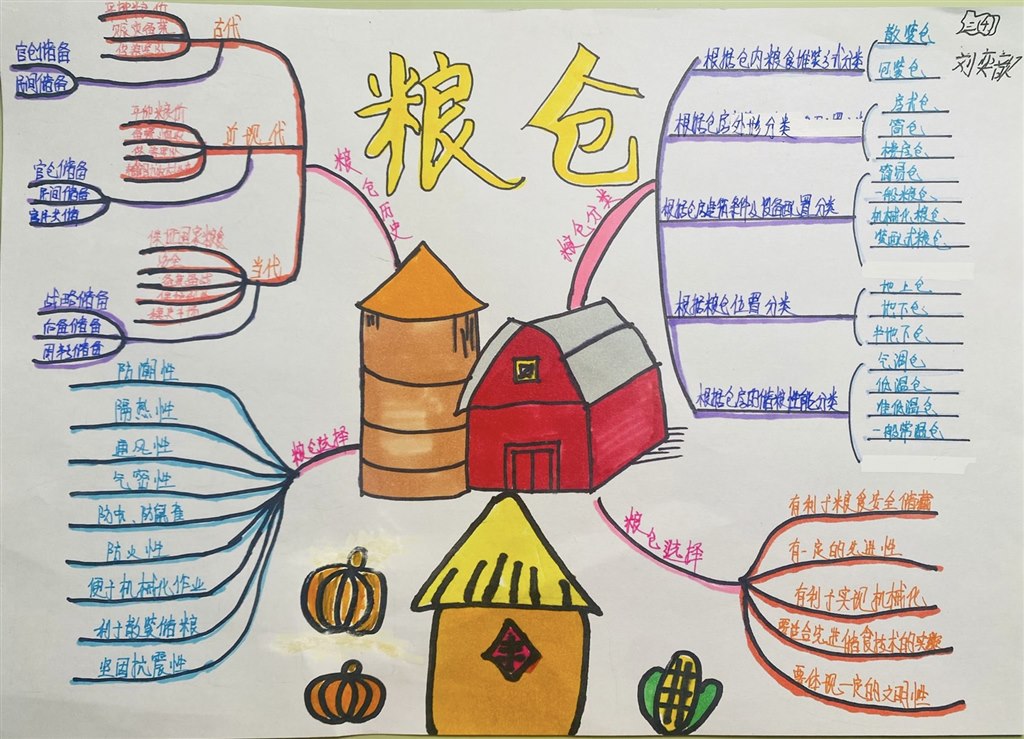 粮仓
三(4)
刘奕歆
粮仓历史
古代
官仓储备
民间储备
近现代
平抑粮价
官仓储备
民间储备
当代
保证国家粮食
安全
备荒备战
战略储备
后备储备
周转储备
粮仓分类
根据仓内粮食堆装方式分类
散装仓
包装仓
根据仓房外形分类
房式仓
筒仓
楼房仓
根据仓房建筑条件及设备配置分类
简易仓
一般粮仓
机械化粮仓
装配式粮仓
根据粮仓位置分类
地上仓
地下仓
半地下仓
根据仓房的储粮性能分类
气调仓
低温仓
准低温仓
一般常温仓
粮仓选择
防潮性
隔热性
通风性
气密性
防虫、防鼠雀
防火性
便于机械化作业
利于散装储粮
坚固抗震性
粮仓选择
有利于粮食安全储藏
有一定的先进性
有利于实现机械化
要结合先进储食技术的实际
要体现一定的文明性
丰